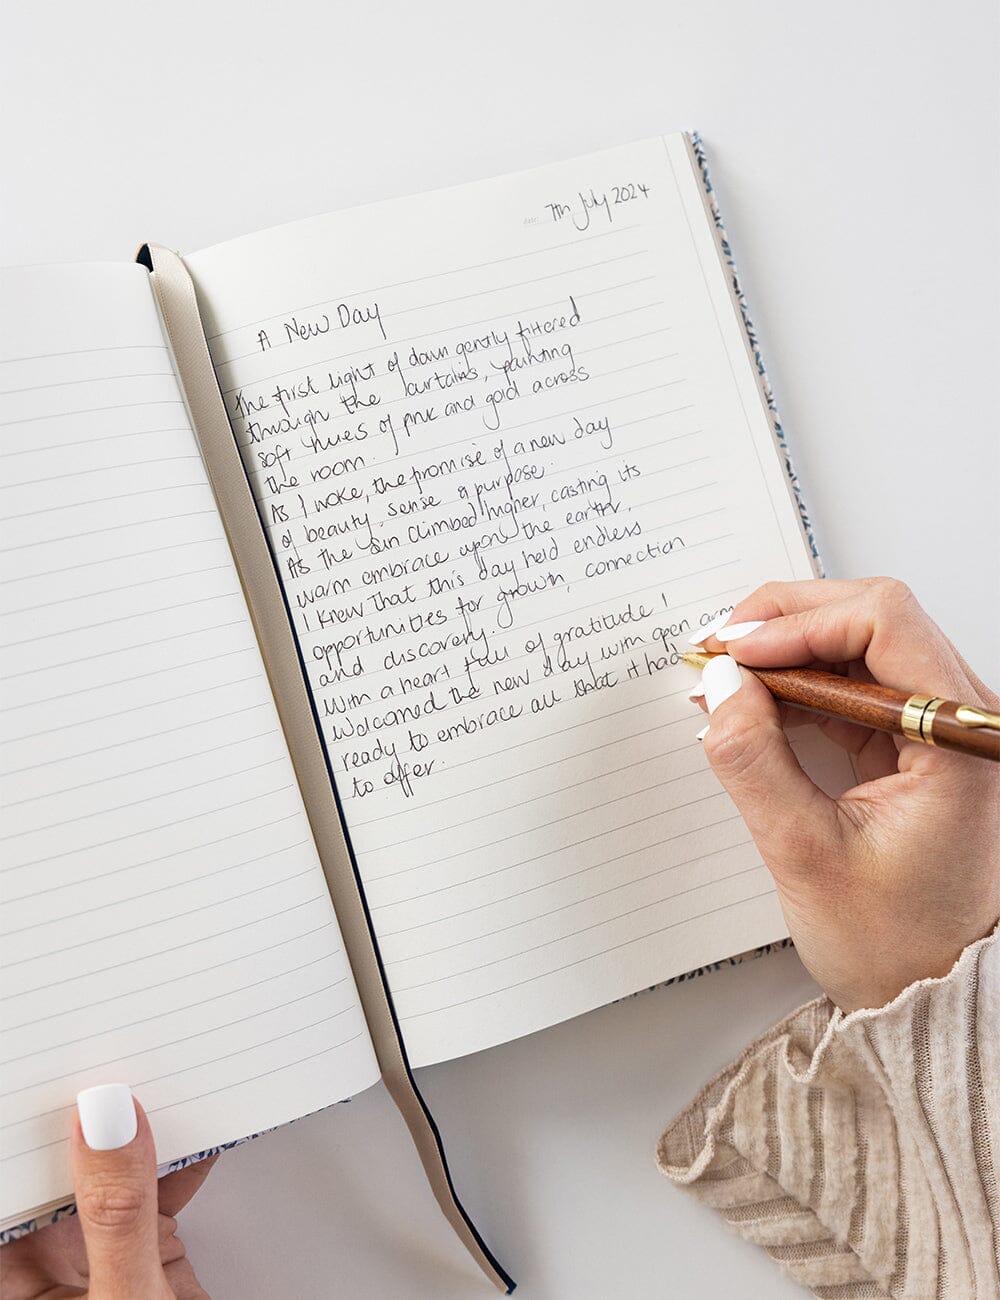 date: 7th July 2024
A New Day
The first light of dawn gently filtered
through the curtains, painting
soft hues of pink and gold across
the room.
As I woke, the promise of a new day
of beauty, sense & purpose.
As the sun climbed higher, casting its
warm embrace upon the earth,
I knew that this day held endless
opportunities for growth, connection
and discovery.
With a heart full of gratitude I
welcomed the new day with open arm
ready to embrace all that it had
to offer.